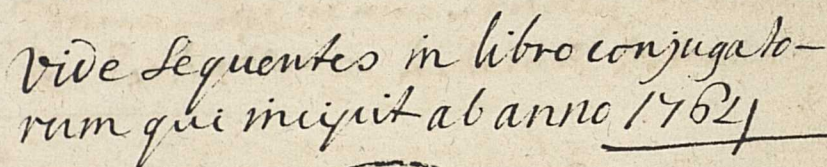 Vide Sequentes in libro conjugato-
rum qui incipit ab anno 1764